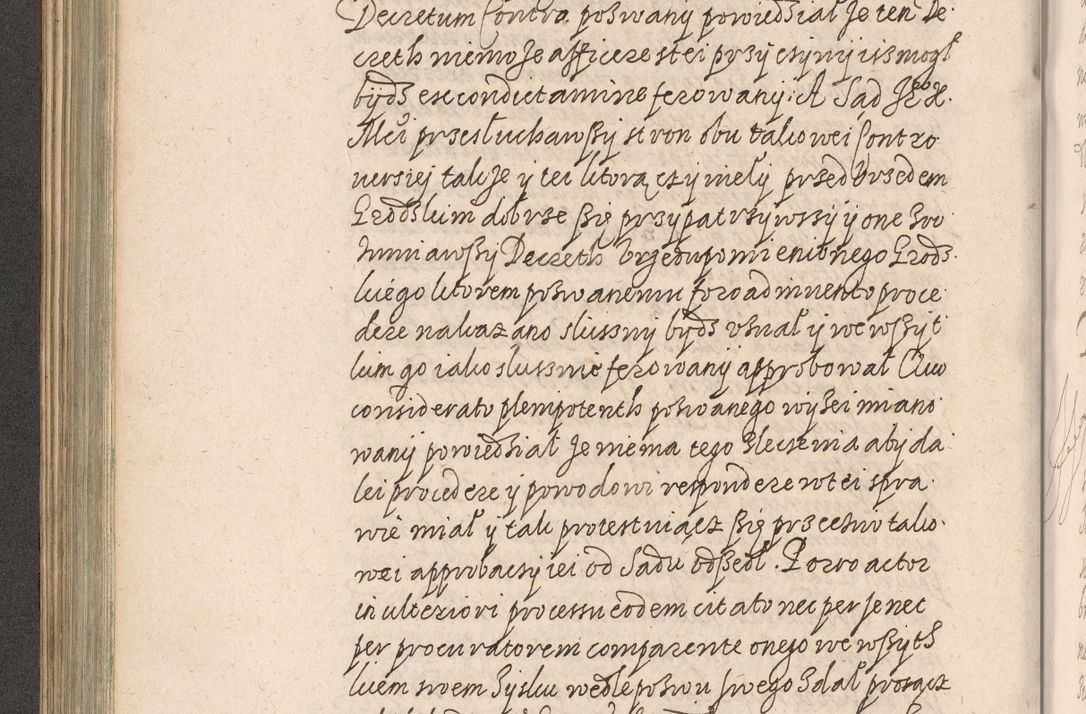 Decretum Contra pozwany powiedział Je ten De
creth niemoze afficere stei przyczyny iis mogł
bydz ex condictamine ferowany: A Sąd JeX.
Mci przesłuchawszy stron obu takowei Contro
uersiej takze y tei ktorą czyniely przed Vrzedem
Grodskim dobrze się przypatrzywszy y one zro
zumiawszy Decreth Vrzedu pomienionego Grodz
kiego ktorem pozwanemu foro ad inuento proce
dere nakazano slussny bydz vznał y we wszyt
kim go iako slussnie ferowany approbował Quo
considerato plempotenth pozwanego wyzei miano
wany powiedział Je niema tego zlecenia aby da
lei procedere y powodowi respondere wtei spra
wie miał y tak protestuiącz się przeciwo tako
wei approbacyiei od Sadu odszedł. Porro actor
in ulteriori processu eodem citato nec per se nec
per procuratorem comparente onego we wszyth
kiem swem zysku wedle pozwu swego zdał prosącz